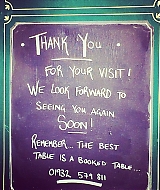 · THANK YOU ·
FOR YOUR VISIT!
WE LOOK FORWARD TO
SEEING YOU AGAIN
SOON!
REMEMBER... THE BEST
TABLE IS A BOOKED TABLE...
01932 579 811